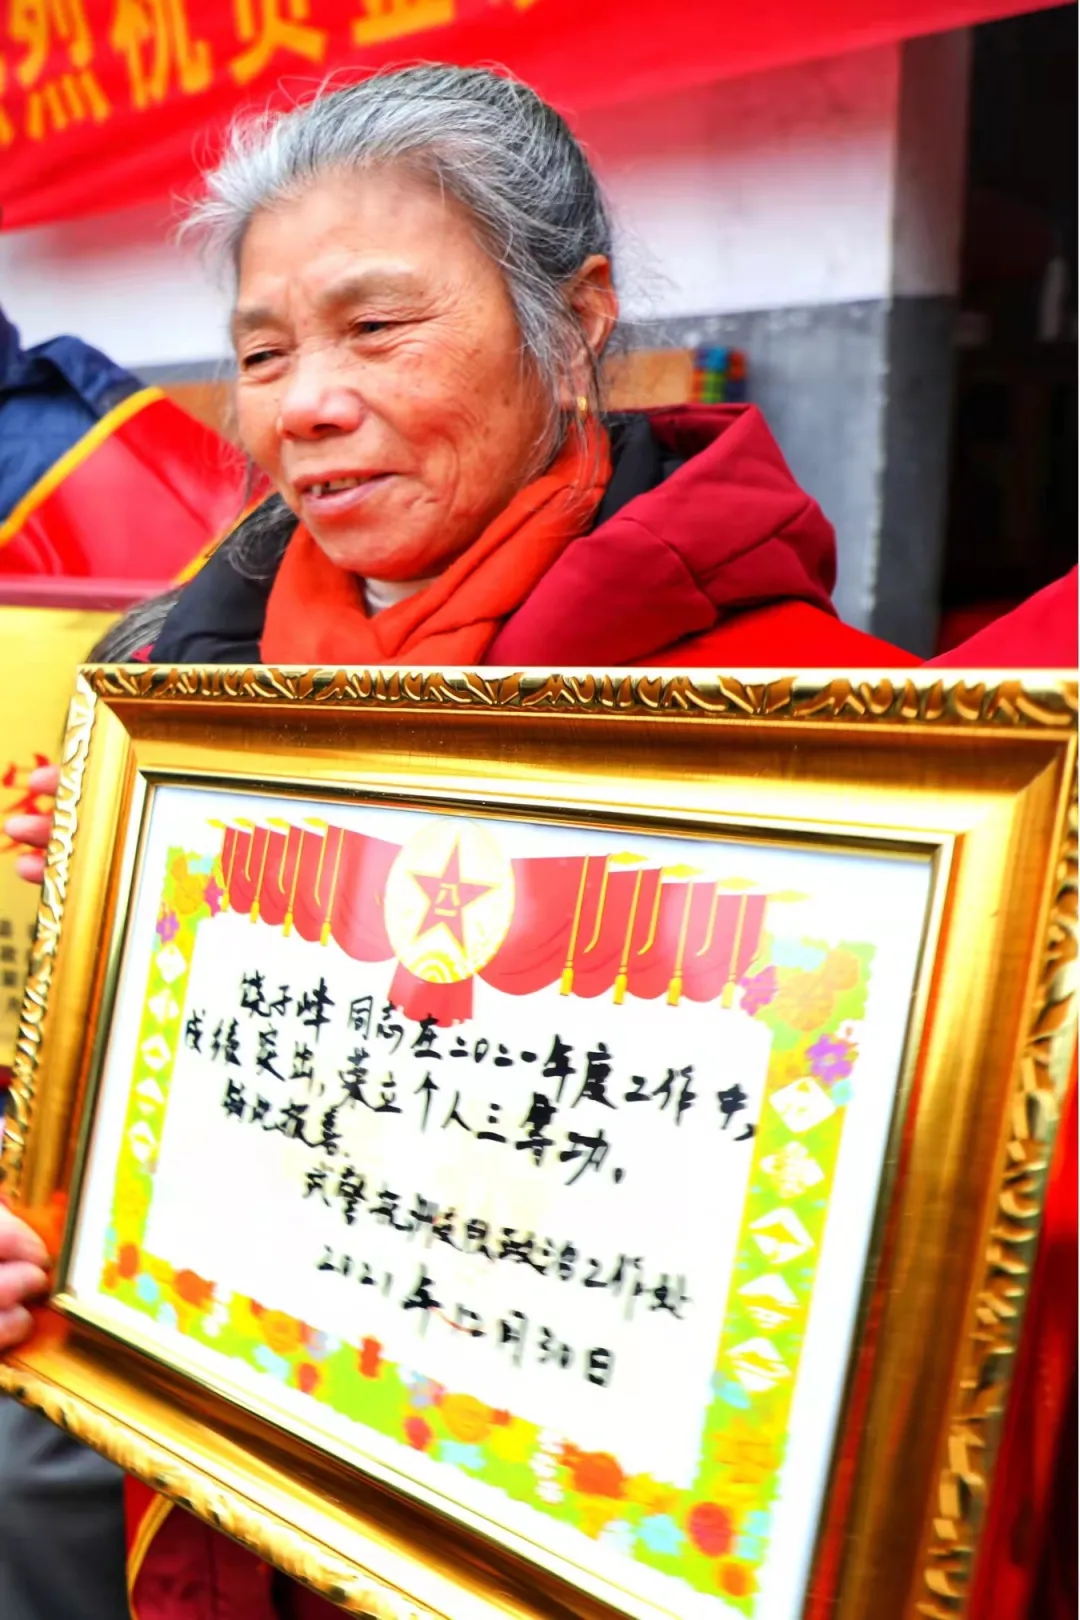 烈祝贺
八一
饶子峰 同志在二〇二一年度工作中,
成绩突出,荣立个人三等功。
特此报喜.
武警杭州支队政治工作处
2021年12月30日